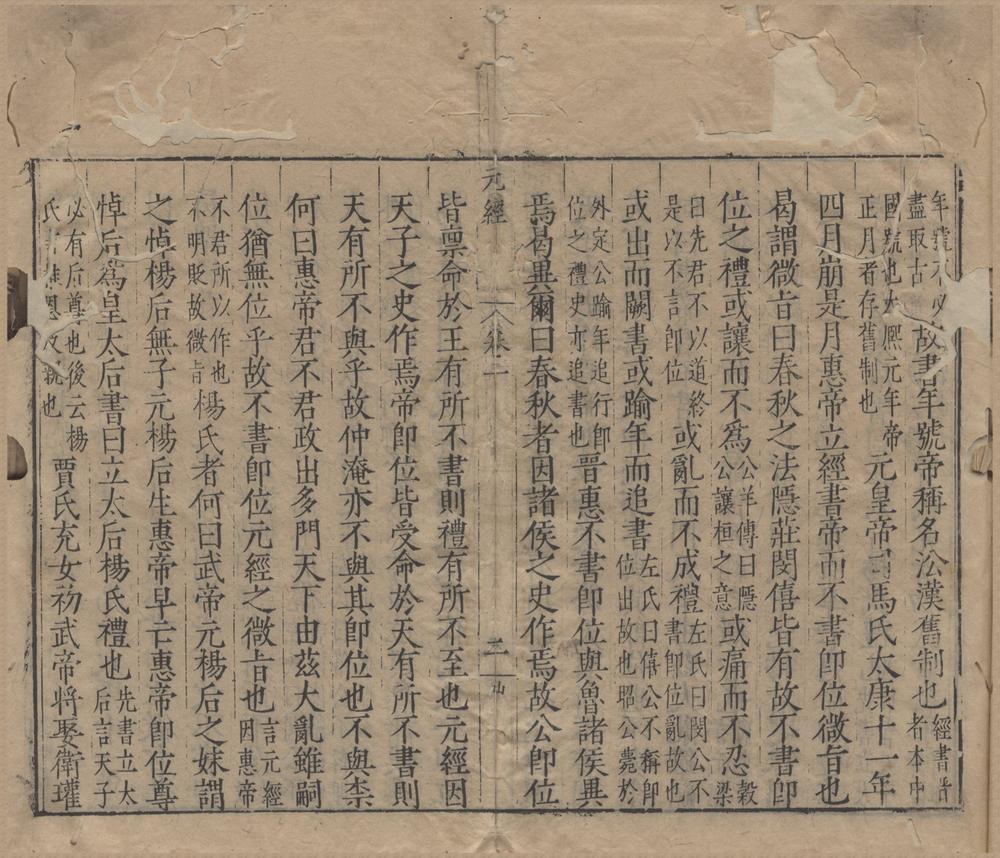 年號不必
盡取古
故書年號帝稱名㳂漢舊制也
經書晉
者本中
國號也太熙元年帝
正月者存舊制也
元皇帝司馬氏太康十一年
四月崩是月惠帝立經書帝而不書卽位微旨也
曷謂微旨曰春秋之法隱莊閔僖皆有故不書卽
位之禮或讓而不爲
公羊傳曰隱
公讓桓之意
或痛而不忍
穀
梁
曰先君不以道終
是以不言卽位
或亂而不成禮
左氏曰閔公不
書卽位亂故也
或出而闕書或踰年而追書
左氏曰僖公不稱卽
位出故也昭公薨於
外定公踰年追行卽
位之禮史亦追書也
晉惠不書卽位與魯諸侯異
焉曷異爾曰春秋者因諸侯之史作焉故公卽位
元經
卷二
三
山
皆禀命於王有所不書則禮有所不至也元經因
天子之史作焉帝卽位皆受命於天有所不書則
天有所不與乎故仲淹亦不與其卽位也不與柰
何曰惠帝君不君政出多門天下由茲大亂雖嗣
位猶無位乎故不書卽位元經之微旨也
言元經
因惠帝
不君所以作也
不明貶故微旨
楊氏者何曰武帝元楊后之妹謂
之悼楊后無子元楊后生惠帝早亡惠帝卽位尊
悼后爲皇太后書曰立太后楊氏禮也
先書立太
后言天子
必有后尊也後云楊
氏
親也
賈氏充女初武帝將娶衛瓘